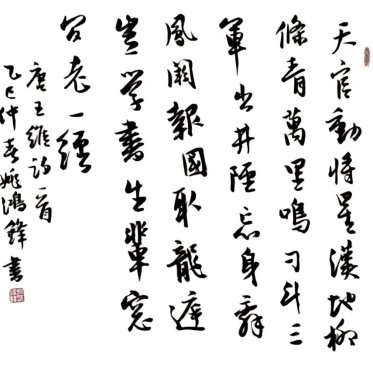 天官動將星漢地柳
條青萬里鳴刁斗三
軍出井陘忘身辭
鳳闕報國取龍庭
豈学書生輩窓
間老一經
唐王維詩一首
乙巳仲春姚鴻鋒書